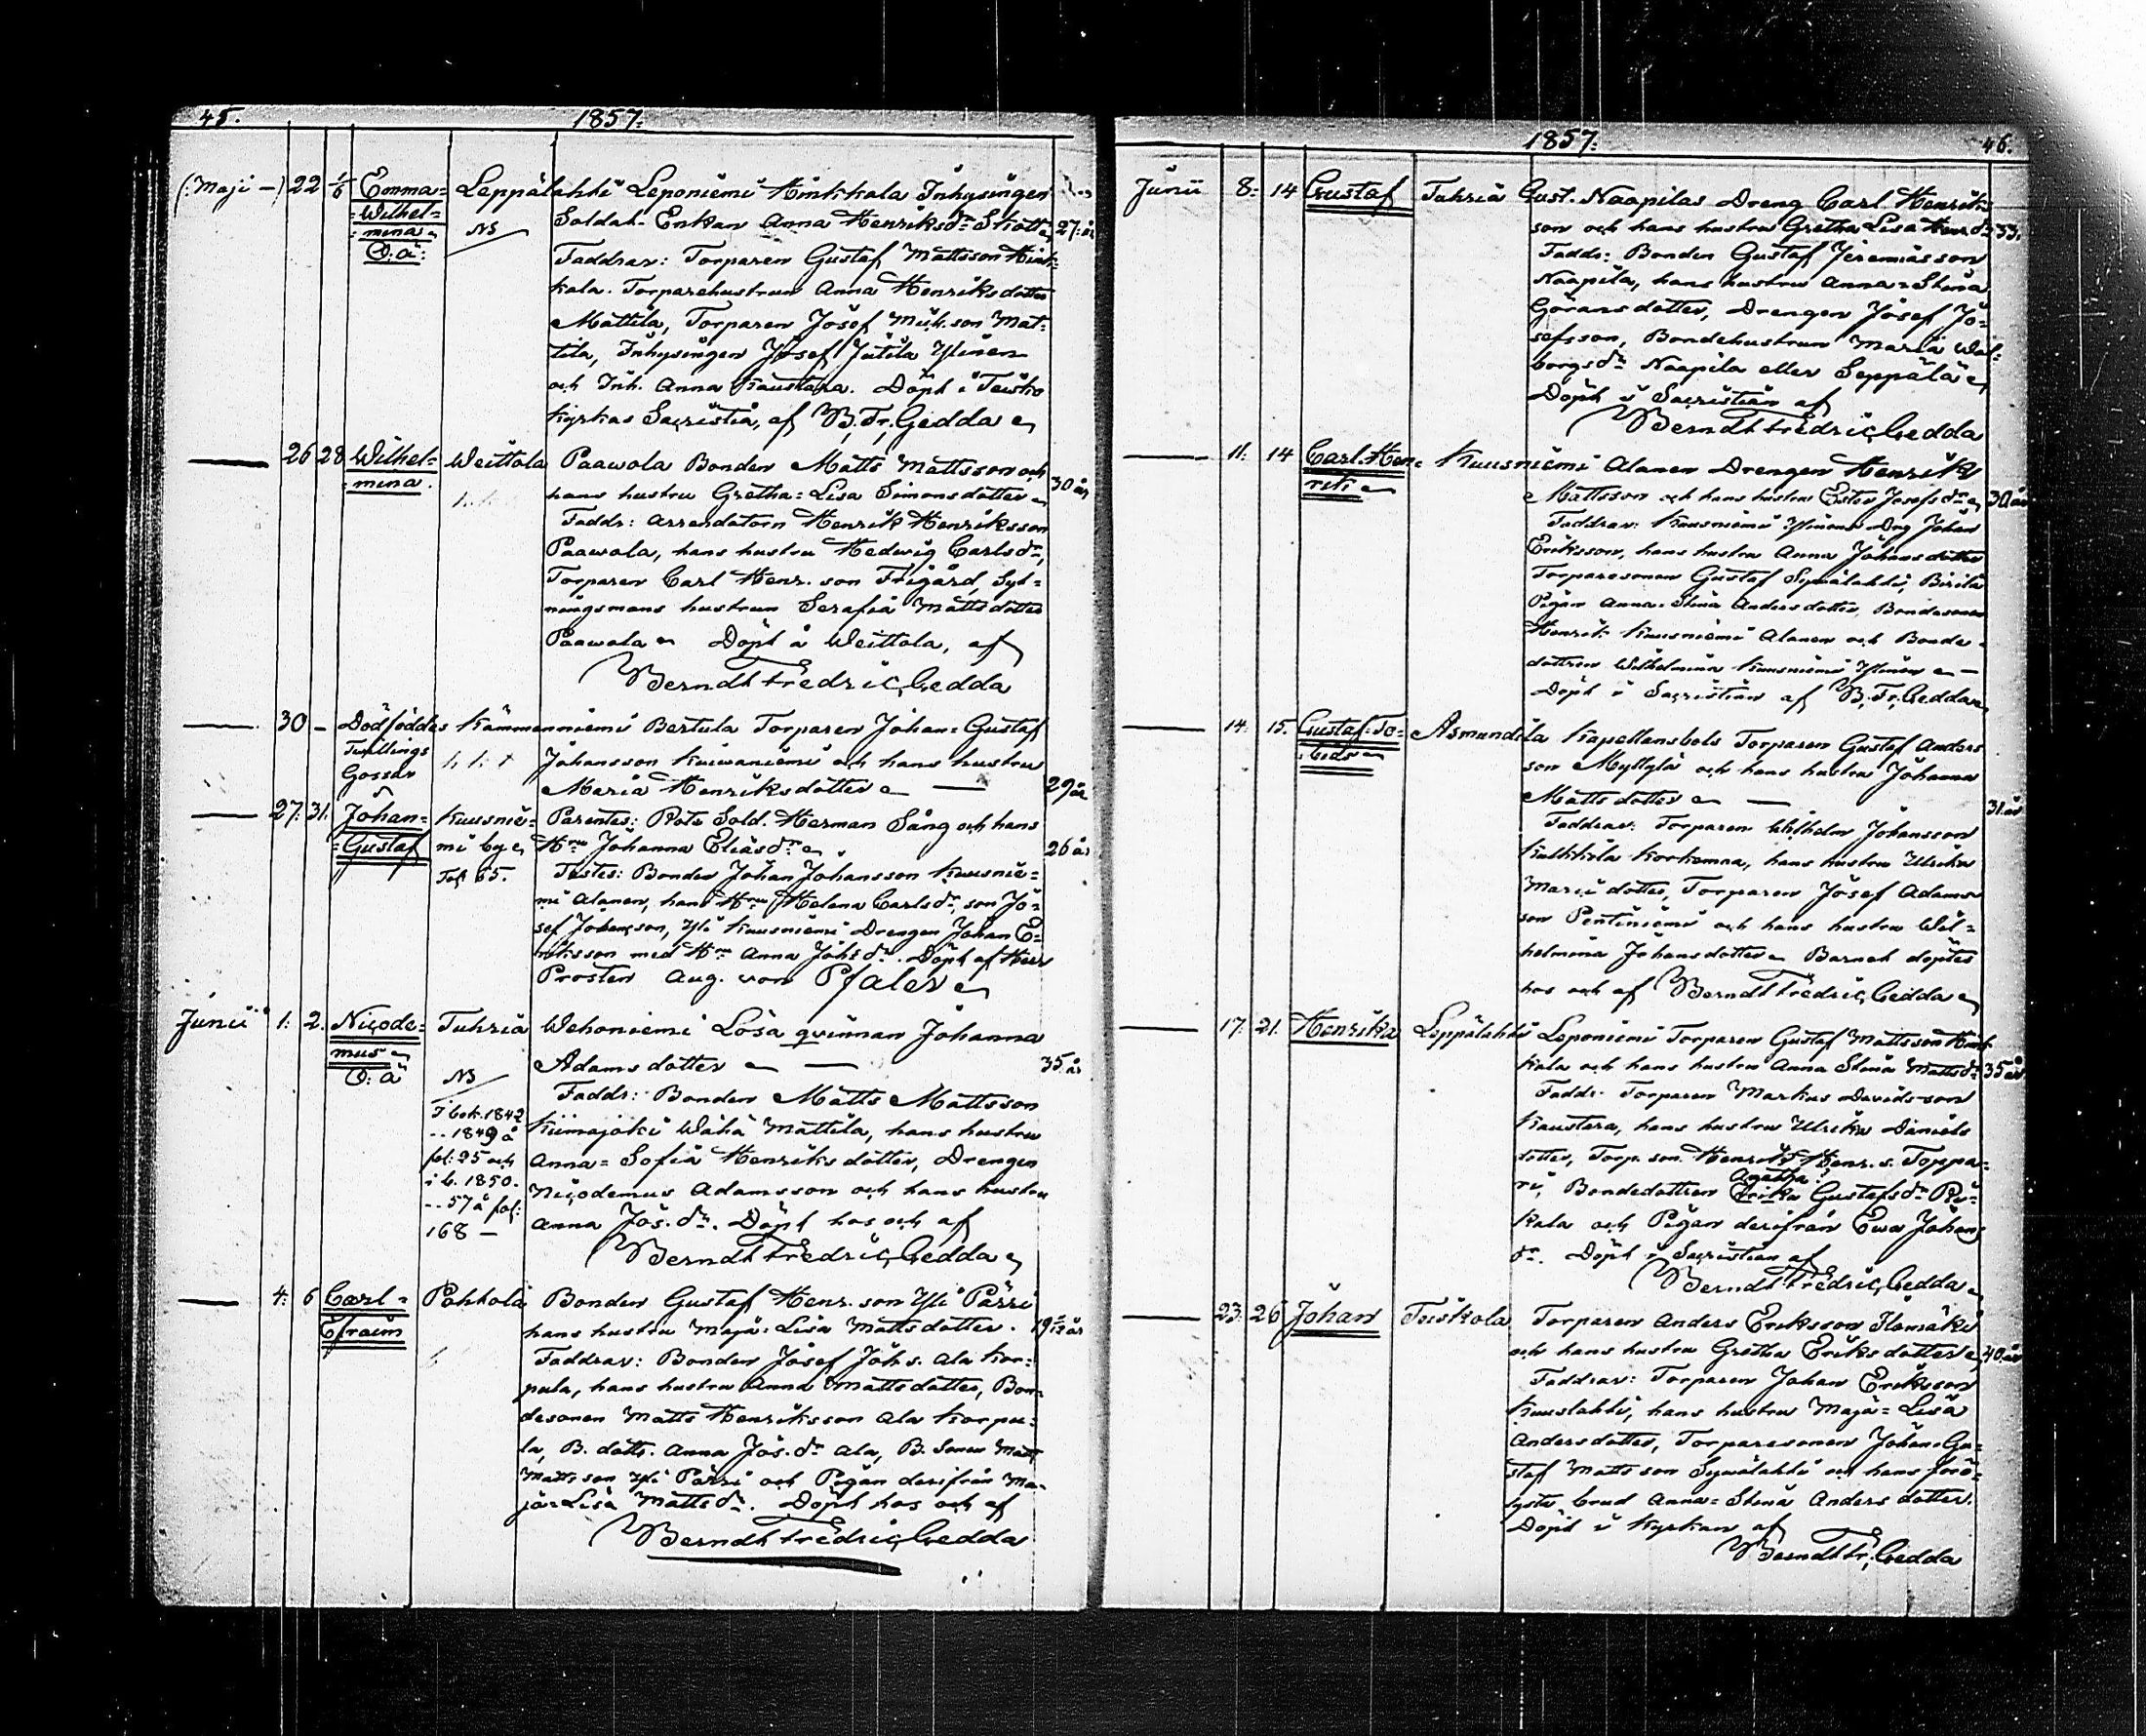 45.
1857.
(: Maji —) 22 1/6 Emma= Leppälahti Leponiemi Hinkkala Inhysingen
=Wilhel= Soldat-Enkan Anna Henriksdr 27: år
=mina NB
O. ä: Faddrar: Torparen Gustaf Mattsson Hink=
kala. Torparehustrun Anna Henriksdotter
Mattila, Torparen Josef Mich.son Mat=
tila, Inhysingen Josef Jutila Ylinen
och Inh. Anna Kaustara. Döpt i Teisko
Kyrkas Sacristia, af B. Fr. Gedda
— 26 28 Wilhel= Weittola Paawola Bonden Matts Mattsson och
=mina. hans hustru Gretha=Lisa Simonsdotter 30 år
Faddr: Arrendatorn Henrik Henriksson
Paawola, hans hustru Hedwig Carlsdr,
Torparen Carl Henr. son Frigård, Syt=
ningsmans hustrun Serafia Mattsdotter
Paawola Döpt å Weittola, af
Berndt Fredric Gedda
— 30 — Dödföddes Kämmenniemi Bertula Torparen Johan=Gustaf
Twillings Johansson Kuiwaniemi och hans hustru
Gossar Maria Henriksdotter — 29 år
— 27. 31. Johan= Kuusnie= Parentes: Rote Sold. Herman Sång och hans
=Gustaf mi by Hru Johanna Eliasdr 26 år
Tof 65. Testes: Bonden Johan Johansson Kuusnie=
mi Alanen, hans Hru Helena Carlsdr, son Jo=
sef Johansson, Yli Kuusniemi Drengen Johan E=
riksson med Hru Anna Johsdr. Döpt af Herr
Prosten Aug. von Pfaler
Junii 1. 2. Nicode= Tuhria Wehoniemi Lösa qvinnan Johanna
mus Adamsdotter — 35 år
O. ä NB Faddr: Bonden Matts Mattsson
I bok. 1842 Kiimajoki Wähä Mattila, hans hustru
--1849 å
fol: 25 och Anna=Sofia Henriksdotter, Drengen
i b. 1850. Nicodemus Adamsson och hans hustru
--57 å fol: Anna Jos.dr. Döpt hos och af
168 — Berndt Fredric Gedda
— 4. 6 Carl= Pohtola Bonden Gustaf Henr.son Yli Pärri
Efraim hans hustru Maja=Lisa Mattsdotter. 19
Faddrar: Bonden Josef Joh s. Ala Kor=
pula, hans hustru Anna Mattsdotter, Bon=
desonen Matts Henriksson Ala Korpu=
la, B. dott. Anna Jos.dr Ala, B. Sonen Matts
Mattsson Yli Pärri och Pigan derifrån Ma=
ja=Lisa Mattsdr. Döpt hos och af
Berndt Fredric Gedda
1857.
46.
Junii 8. 14 Gustaf Tuhria Gust. Naapilas Dreng Carl Henriks
son och hans hustru Gretha Lisa Henr.dr 33.
Faddr: Bonden Gustaf Jeremiasson
Naapila, hans hustru Anna=Stina
Göransdotter, Drengen Josef Jo=
sefsson, Bondehustrun Maria Wal=
borgsdr Naapila eller Seppälä
Döpt i Sacristian af
Berndt Fredric Gedda
— 11. 14 Carl. Hen= Kuusniemi Alanen Drengen Henrik
rik Mattsson och hans hustru Ester Josefsdr 30 år
Faddrar: Kuusniemi Ylinens Drg Johan
Eriksson, hans hustru Anna Johansdotter
Torparesonen Gustaf Sywälahti, Birila
Pigan Anna=Stina Andersdotter, Bondesonen
Henrik Kuusniemi Alanen och Bonde=
dottren Wilhelmina Kuusniemi Ylinen —
Döpt i Sacristian af B. Fr. Gedda
— 14. 15. Gustaf=To= Asmundila Kapellansbols Torparen Gustaf Anders
bias son Myllylä och hans hustru Johanna
Mattsdotter — 31. år
Faddrar: Torparen Wilhelm Johansson
Kulkkila Korkemna, hans hustru Ulrika
Mariædotter, Torparen Josef Adams
son Pentiniemi och hans hustru Wil=
helmina Johansdotter Barnet döptes
hos och af Berndt Fredric Gedda
— 17. 21. Henrika Leppälahti Leponiemi Torparen Gustaf Mattsson Hink
kala och hans hustru Anna Stina Mattsdr 35 år
Faddr: Torparen Markus Davidsson
Kaustara, hans hustru Ulrika Daniels
dotter, Torp. son. Henrik Henr. s. Toppa=
Agatha
ri, Bondedottren Erika Gustafsdr Ri=
kala och Pigan derifrån Ewa Johans
dr. Döpt i Sacristian af
Berndt Fredric Gedda
— 23. 26 Johan Teiskola Torparen Anders Eriksson Ilomäki
och hans hustru Gretha Eriksdotter 40. år
Faddrar: Torparen Johan Eriksson
Kuuslahti, hans hustru Maja=Lisa
Andersdotter, Torparesonen Johan=Gu=
staf Mattsson Sywälahti och hans
brud Anna=Stina Andersdotter.
Döpt i Kyrkan af
Berndt Fr. Gedda